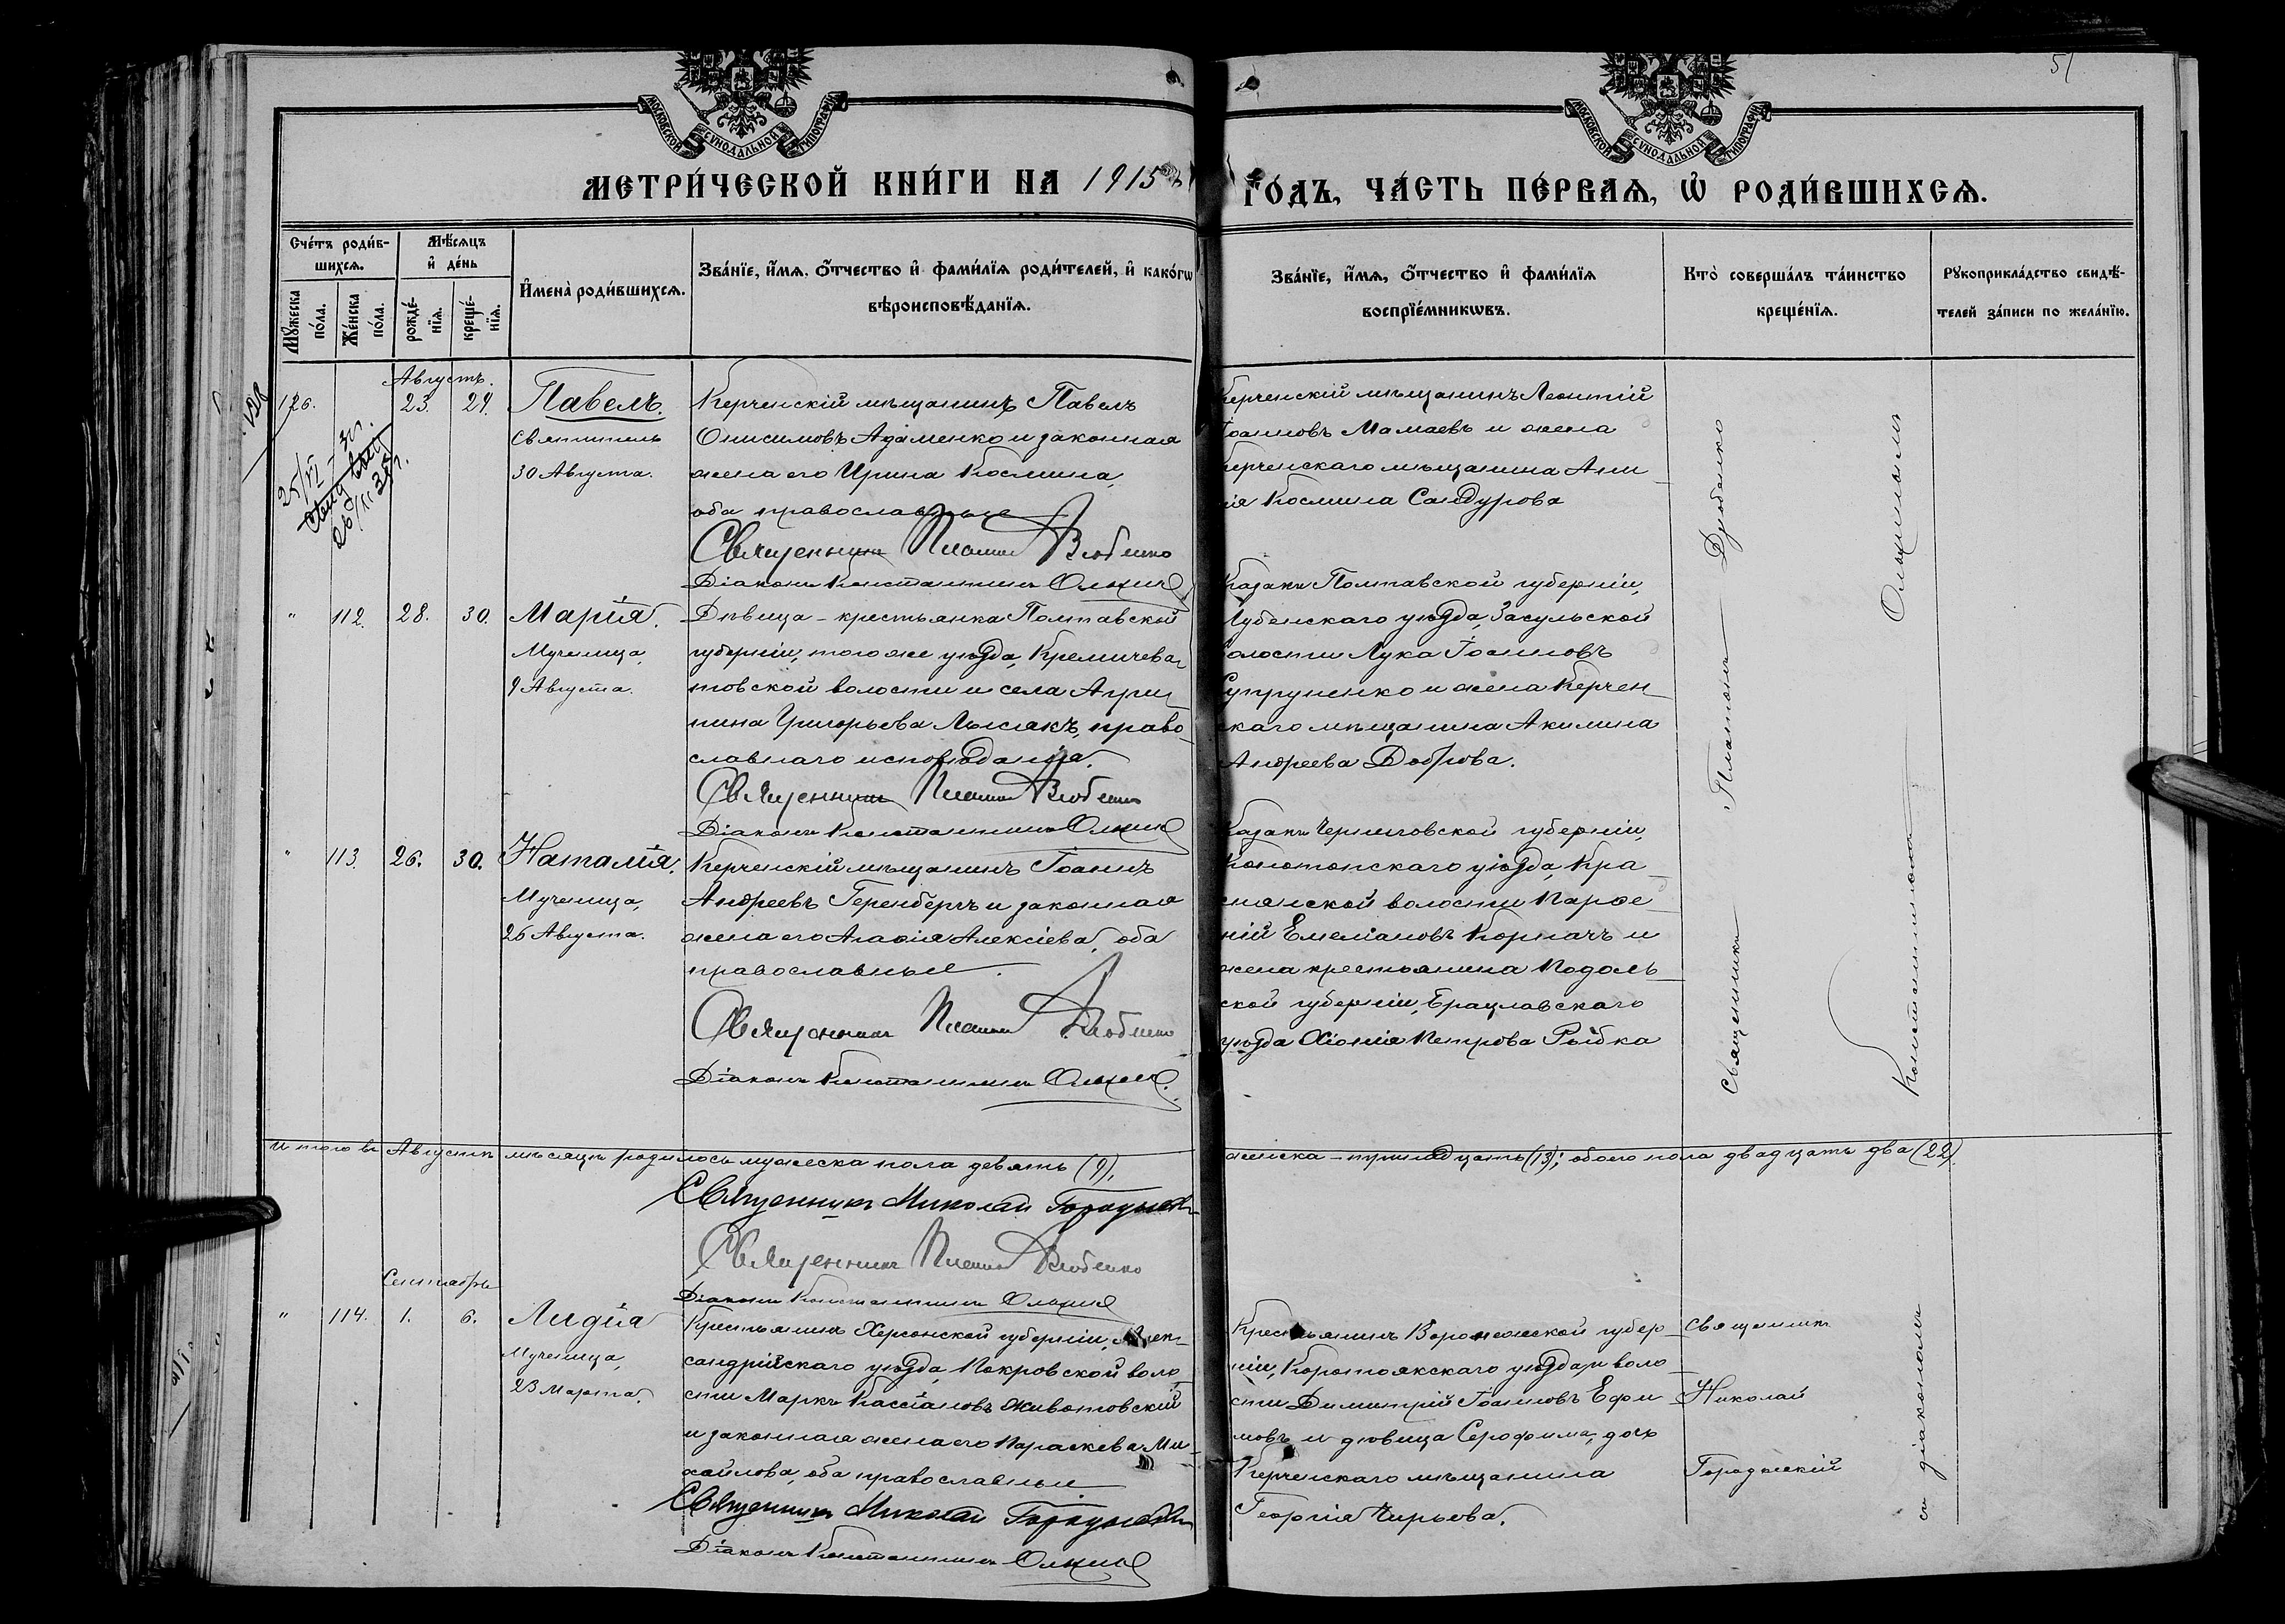 51
МОСКОВСКОЙ СѴНОДАЛЬНОЙ ТИПОГРАФІИ
МОСКОВСКОЙ СѴНОДАЛЬНОЙ ТИПОГРАФІИ
МЕТРИ́ЧЕСКОЙ КНИ́ГИ НА 1915
ГО́ДЪ, ЧА́СТЬ ПЕ́РВАѦ, Ѡ҆ РОДИ́ВШИХСѦ.
Сче́тъ роди́в-
шихсѧ.
Мꙋ́жеска
по́ла.
Же́нска
по́ла.
Мѣ́сѧцъ
и҆ де́нь
рожде́-
нїѧ.
креще́-
нїѧ.
И҆мена̀ роди́вшихсѧ.
Зва́нїе, и҆́мѧ, ѻ҆́тчество и҆ фами́лїѧ роди́телей, и҆ како́гѡ
вѣроисповѣ́данїѧ.
Зва́нїе, и҆́мѧ, ѻ҆́тчество и҆ фами́лїѧ
воспрїе́мникѡвъ.
Кто̀ соверша́лъ та́инство
креще́нїѧ.
Рꙋкоприкла́дство свидѣ́-
телей за́писи по жела́нїю.
Августъ.
126.
23.
29.
Павелъ.
Святитель
30 Августа.
Керченскій мѣщанинъ Павелъ
Онисимовъ Адаменко и законная
жена его Ирина Космина,
оба православные
Священникъ Платонъ
Діаконъ Константинъ
Керченскій мѣщанинъ Леонтій
Іоанновъ Мамаевъ и жена
Керченскаго мѣщанина Ани
ія Космина Сандурова
"
112.
28.
30.
Марія.
Мученица,
9 Августа.
Дѣвица - крестьянка Полтавской
губерніи, того же уѣзда,
товской волости и села Агрип
пина Григорьева Лысакъ, право-
славнаго исповѣданія.
Священникъ Платонъ
Діаконъ Константинъ
Казакъ Полтавской губерніи,
Лубенскаго уѣзда, Засульской
волости Лука Іоанновъ
Супруненко и жена Керчен-
скаго мѣщанина Акилина
Андреева Доброва.
"
113.
26.
30.
Наталія.
Мученица,
26 Августа.
Керченскій мѣщанинъ Іоаннъ
Андреевъ Геренбергъ и законная
жена его Агафія Алексіева, оба
православные.
Священникъ Платонъ
Діаконъ Константинъ
Казакъ Черниговской губерніи,
Конотопскаго уѣзда, Кра-
снянской волости Парфе-
ній Емеліановъ Кориачъ и
жена крестьянина Подоль-
ской губерніи, Брацлавскаго
уѣзда Хіонія Петрова Рыбка
Священникъ Платонъ
Константиномъ
Итого въ Августѣ мѣсяцѣ родилось мужеска пола девять (9),
женска - тринадцать (13); обоего пола двадцать два (22).
Священникъ Николай
Священникъ Платонъ
Діаконъ Константинъ
Сентябрь
"
114.
1.
6.
Лидія
Мученица,
23 Марта.
Крестьянинъ Херсонской губерніи, Алек-
сандрійскаго уѣзда, Покровской воло-
сти Маркъ Кассіановъ Животовскій
и законная жена его Параскева Ми-
хайлова, оба православные
Священникъ Николай
Діаконъ Константинъ
Крестьянинъ Воронежской губер-
ніи, Коротоякскаго уѣзда, и воло-
сти Димитрій Іоанновъ Ефи
мовъ и дѣвица Серафима, дочь
Керченскаго мѣщанина
Георгія Чирьева.
Священникъ
Николай
съ діакономъ